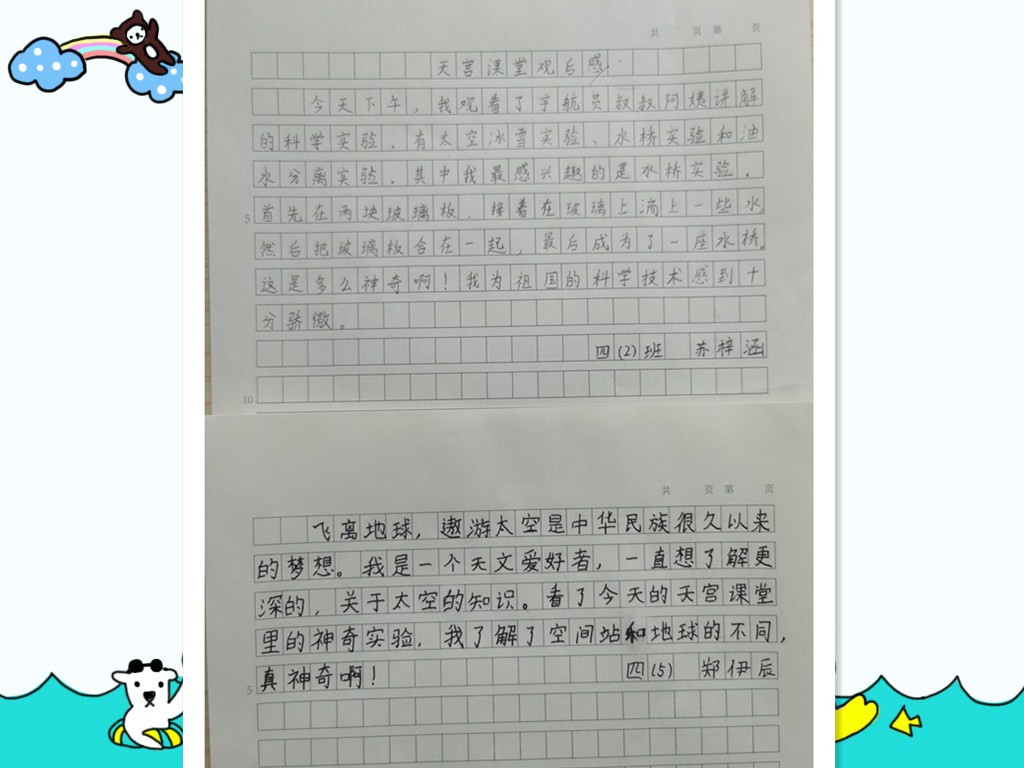 共 页 第 页
天宫课堂观后感
今天下午，我观看了宇航员叔叔阿姨讲解
的科学实验。有太空冰雪实验、水桥实验和油
水分离实验。其中我最感兴趣的是水桥实验。
5 首先在两块玻璃板，接着在玻璃上滴上一些水，
然后把玻璃板合在一起，最后成为了一座水桥。
这是多么神奇啊！我为祖国的科学技术感到十
分骄傲。
四(2)班 苏梓涵
10
共 页 第 页
飞离地球，遨游太空是中华民族很久以来
的梦想。我是一个天文爱好者，一直想了解更
深的，关于太空的知识。看了今天的天宫课堂
里的神奇实验，我了解了空间站和地球的不同，
5 真神奇啊！ 四(5) 郑伊辰